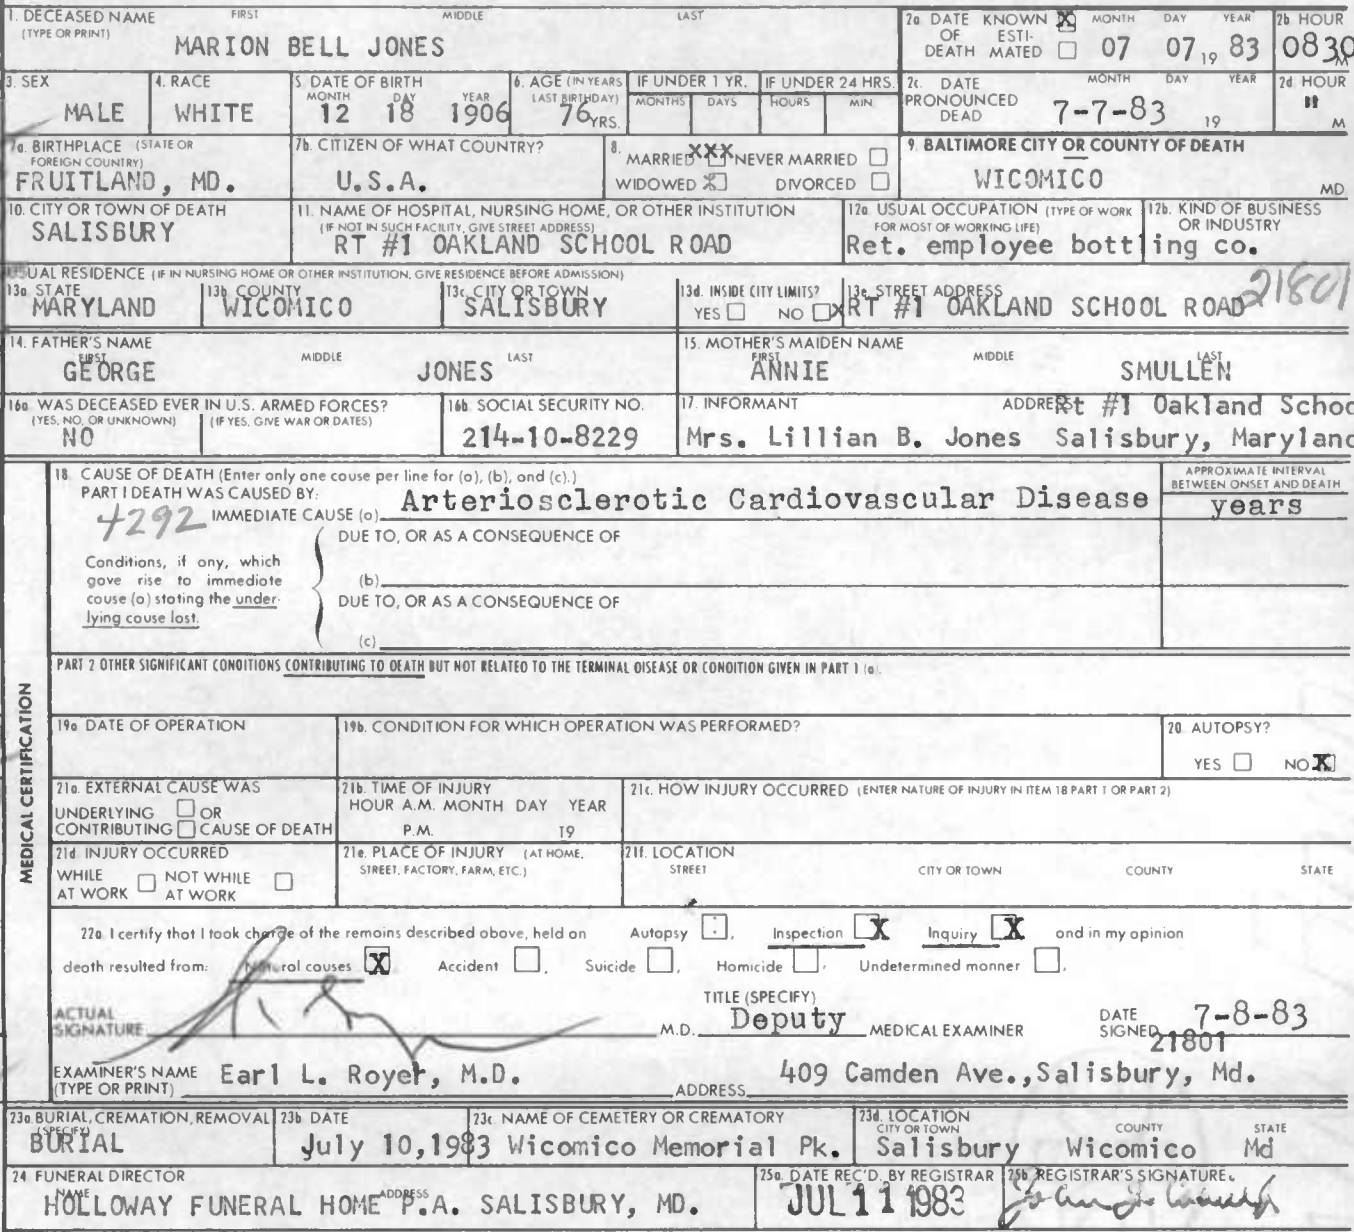 1. DECEASED NAME FIRST MIDDLE LAST
(TYPE OR PRINT)
MARION BELL JONES
2a DATE KNOWN X MONTH DAY YEAR
OF ESTI-
DEATH MATED 07 07 19 83
2b HOUR
0830 M
3. SEX
MALE
4. RACE
WHITE
5. DATE OF BIRTH
MONTH DAY YEAR
12 18 1906
6. AGE (IN YEARS
LAST BIRTHDAY)
76 YRS.
IF UNDER 1 YR.
MONTHS DAYS
IF UNDER 24 HRS.
HOURS MIN.
2c. DATE MONTH DAY YEAR
PRONOUNCED
DEAD 7-7-83 19
2d. HOUR
" M
7a. BIRTHPLACE (STATE OR
FOREIGN COUNTRY)
FRUITLAND, MD.
7b. CITIZEN OF WHAT COUNTRY?
U.S.A.
8.
MARRIED XXX NEVER MARRIED
WIDOWED X DIVORCED
9. BALTIMORE CITY OR COUNTY OF DEATH
WICOMICO MD.
10. CITY OR TOWN OF DEATH
SALISBURY
11. NAME OF HOSPITAL, NURSING HOME, OR OTHER INSTITUTION
(IF NOT IN SUCH FACILITY, GIVE STREET ADDRESS)
RT #1 OAKLAND SCHOOL ROAD
12a. USUAL OCCUPATION (TYPE OF WORK
FOR MOST OF WORKING LIFE)
12b. KIND OF BUSINESS
OR INDUSTRY
Ret. employee bottling co.
USUAL RESIDENCE (IF IN NURSING HOME OR OTHER INSTITUTION, GIVE RESIDENCE BEFORE ADMISSION)
13a. STATE
MARYLAND
13b. COUNTY
WICOMICO
13c. CITY OR TOWN
SALISBURY
13d. INSIDE CITY LIMITS?
YES NO X
13e. STREET ADDRESS
RT #1 OAKLAND SCHOOL ROAD 21801
14. FATHER'S NAME
FIRST MIDDLE LAST
GEORGE JONES
15. MOTHER'S MAIDEN NAME
FIRST MIDDLE LAST
ANNIE SMULLEN
16a. WAS DECEASED EVER IN U.S. ARMED FORCES?
(YES, NO, OR UNKNOWN) (IF YES, GIVE WAR OR DATES)
NO
16b. SOCIAL SECURITY NO.
214-10-8229
17. INFORMANT ADDRE Rt #1 Oakland Schoo
Mrs. Lillian B. Jones Salisbury, Maryland
MEDICAL CERTIFICATION
18. CAUSE OF DEATH (Enter only one couse per line for (a), (b), and (c).)
PART I DEATH WAS CAUSED BY:
4292 IMMEDIATE CAUSE (a) Arteriosclerotic Cardiovascular Disease
APPROXIMATE INTERVAL
BETWEEN ONSET AND DEATH
years
DUE TO, OR AS A CONSEQUENCE OF
Conditions, if any, which
gave rise to immediate
couse (a) stating the under-
lying couse last.
(b)
DUE TO, OR AS A CONSEQUENCE OF
(c)
PART 2 OTHER SIGNIFICANT CONDITIONS CONTRIBUTING TO DEATH BUT NOT RELATED TO THE TERMINAL DISEASE OR CONDITION GIVEN IN PART 1 (a).
19a DATE OF OPERATION
19b. CONDITION FOR WHICH OPERATION WAS PERFORMED?
20. AUTOPSY?
YES NO X
21a. EXTERNAL CAUSE WAS
UNDERLYING OR
CONTRIBUTING CAUSE OF DEATH
21b. TIME OF INJURY
HOUR A.M. MONTH DAY YEAR
P.M. 19
21c. HOW INJURY OCCURRED (ENTER NATURE OF INJURY IN ITEM 18 PART 1 OR PART 2)
21d. INJURY OCCURRED
WHILE NOT WHILE
AT WORK AT WORK
21e. PLACE OF INJURY (AT HOME,
STREET, FACTORY, FARM, ETC.)
21f. LOCATION
STREET CITY OR TOWN COUNTY STATE
22a. I certify that I took charge of the remains described above, held on Autopsy , Inspection X Inquiry X and in my opinion
death resulted from: Natural causes X Accident , Suicide , Homicide , Undetermined manner .
ACTUAL
SIGNATURE
M.D.
TITLE (SPECIFY)
Deputy MEDICAL EXAMINER
DATE
SIGNED 7-8-83
21801
EXAMINER'S NAME
(TYPE OR PRINT) Earl L. Royer, M.D.
ADDRESS 409 Camden Ave.,Salisbury, Md.
23a. BURIAL, CREMATION, REMOVAL
(SPECIFY)
BURIAL
23b. DATE
July 10,1983
23c. NAME OF CEMETERY OR CREMATORY
Wicomico Memorial Pk.
23d. LOCATION
CITY OR TOWN COUNTY STATE
Salisbury Wicomico Md
24. FUNERAL DIRECTOR
NAME ADDRESS
HOLLOWAY FUNERAL HOME P.A. SALISBURY, MD.
25a. DATE REC'D. BY REGISTRAR
JUL 11 1983
25b. REGISTRAR'S SIGNATURE